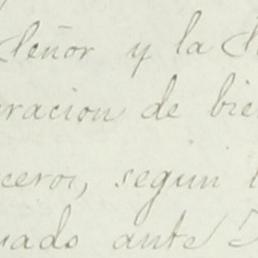 Señor y la
racion de bie
ceros, segun
uado ante